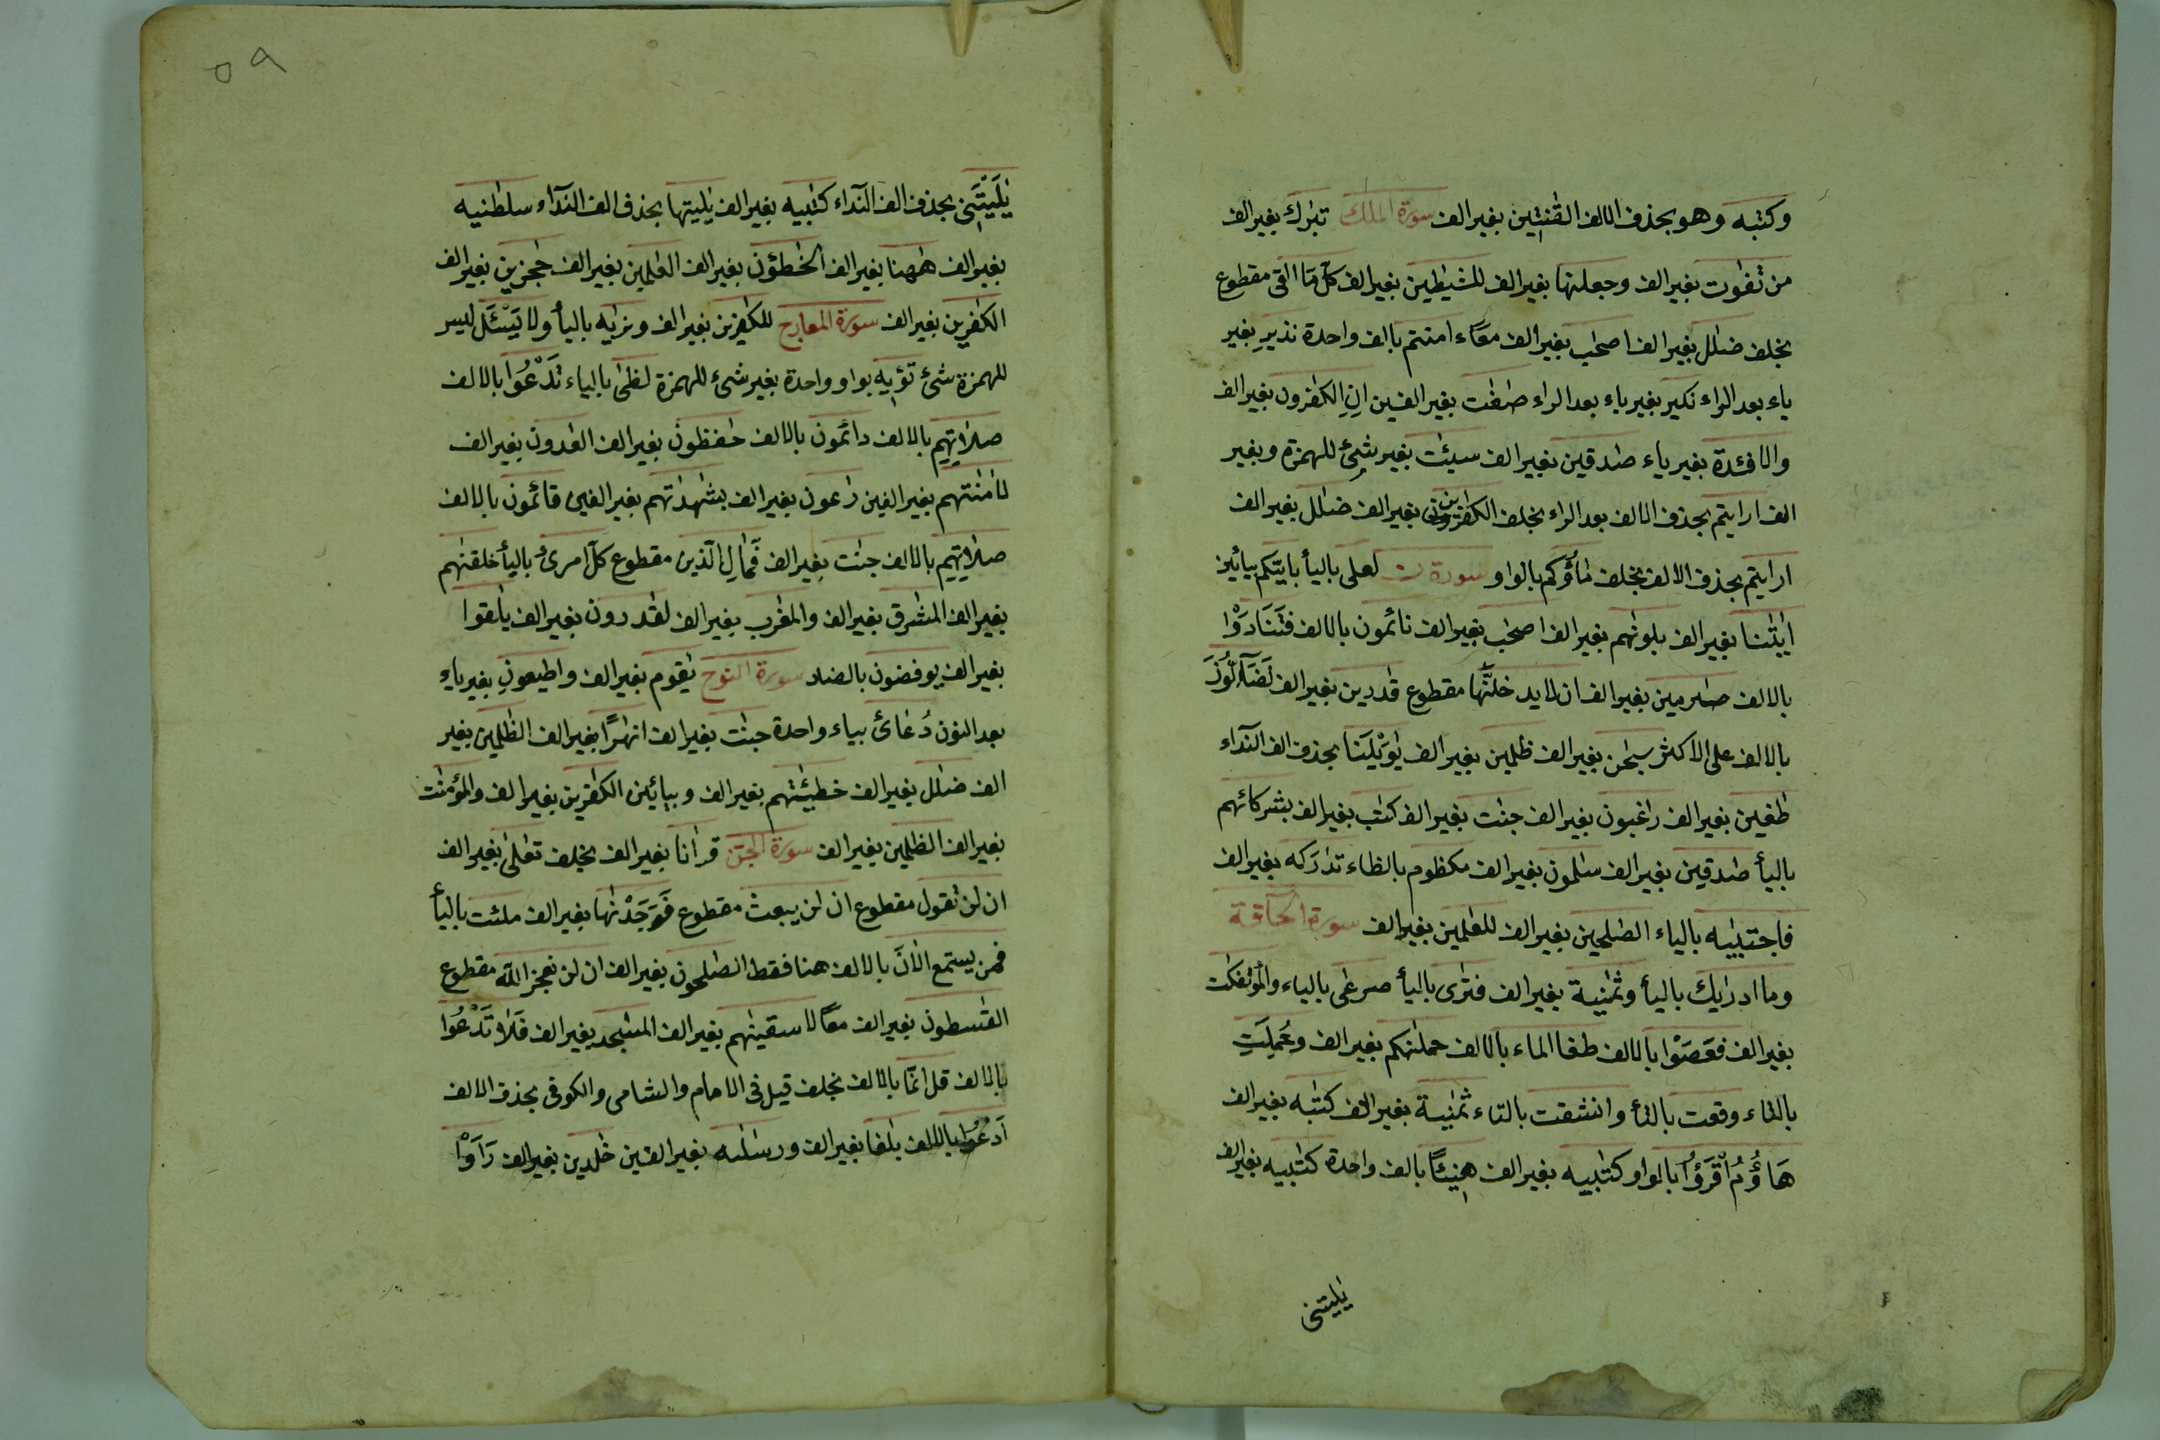 وكتبه وهو بحذف الالف القٰنتين بغير الف سورة الملك تبٰرك بغير الف
من تفٰوت بغير الف وجعلنٰها بغير الف للشيٰطين بغير الف كل ما القى مقطوع
بخلف ضلٰل بغير الف اصحٰب بغير الف معًا ءامنتم بالف واحدة نذيرِ بغير
ياء بعد الراء نكير بغير ياء بعد الراء صٰفٰت بغير الفين انِ الكٰفرون بغير الف
والافئدة بغير ياء صٰدقين بغير الف سيئت بغير شئ للهمزة وبغير
الف ارايتم بحذف الالف بعد الراء بخلف الكٰفرين بغير الف ضلٰل بغير الف
ارايتم بحذف الالف بخلف ماؤكم بالواو سورة ن لعلى باليأ باييّكم بيائين
ايٰتنا بغير الف بلونٰهم بغير الف اصحٰب بغير الف نائمون بالالف فَتَنَادَوْا
بالالف صٰرمين بغير الف ان لا يدخلنّها مقطوع قٰدرين بغير الف لَضَآلُّونَ
بالالف على الاكثر سبحٰن بغير الف ظٰلمين بغير الف يٰوَيْلَنَا بحذف الف النّداء
طٰغين بغير الف رٰغبون بغير الف جنٰت بغير الف كتٰب بغير الف بشركائهم
باليأ صٰدقين بغير الف سٰلمون بغير الف مكظوم بالظاء تدٰرَكه بغير الف
فاجتبٰيه بالياء الصٰلحين بغير الف للعٰلمين بغير الف سورة الحاقة
وما ادرٰيك باليأ وثمٰنية بغير الف فترى باليأ صرعى بالياء والمؤتفكٰت
بغير الف فعَصَوْا بالالف طغا الماء بالالف حملنٰكم بغير الف وحُمِلَتِ
بالتاء وقعت بالتأ وانشقت بالتاء ثمٰنية بغير الف كتٰبه بغير الف
هَاؤُمُ اقْرَؤُا بالواو كتٰبيه بغير الف هنيئًا بالف واحدة كتٰبيه بغير الف
يٰليتنى
٥٩
يٰلَيْتَنِى بحذف الف النّداء كتٰبيه بغير الف يٰليتها بحذف الف النّداء سلطٰنيه
بغير الف هٰهنا بغير الف الخٰطؤن بغير الف العٰلمين بغير الف حٰجزين بغير الف
الكٰفرين بغير الف سورة المعارج للكٰفرين بغير الف ونرٰيه باليأ ولا يَسْئَل ليس
للهمزة شئ تؤيه بواو واحدة بغير شئ للهمزة لظى بالياء تَدْعُوا بالالف
صلاتِهِم بالالف دائمون بالالف حٰفظون بغير الف العٰدون بغير الف
لامٰنٰتهم بغير الفين رٰعون بغير الف بشهٰدٰتهم بغير الفين قائمون بالالف
صلاتِهِم بالالف جنٰت بغير الف فَمَالِ الّذين مقطوع كلّ امرىءٍ باليأ خلقنٰهم
بغير الف المشٰرق بغير الف والمغٰرب بغير الف لقٰدرون بغير الف يلٰقوا
بغير الف يوفضون بالضاد سورة النوح يٰقوم بغير الف واطيعونِ بغير ياء
بعد النون دُعٰائ بياء واحدة جنٰت بغير الف انهٰرًا بغير الف الظٰلمين بغير
الف ضلٰل بغير الف خطيٰئٰتهم بغير الف وبيائين الكٰفرين بغير الف والمؤمنٰت
بغير الف الظٰلمين بغير الف سورة الجن قراٰنا بغير الف بخلف تعٰلى بغير الف
ان لن تقول مقطوع ان لن يبعث مقطوع فَوَجَدْنٰها بغير الف ملئت باليأ
فمن يستمع الأنَ بالالف هنا فقط الصٰلحون بغير الف ان لن نعجز اللّه مقطوع
القٰسطون بغير الف معًا لاسقينٰهم بغير الف المسٰجد بغير الف فَلَا تَدْعُوا
بالالف قل انّما بالالف بخلف قيل فى الامام والشامى والكوفى بحذف الالف
اَدْعُوا بالالف بلٰغا بغير الف ورسٰلٰته بغير الفين خٰلدين بغير الف رَاَوْا